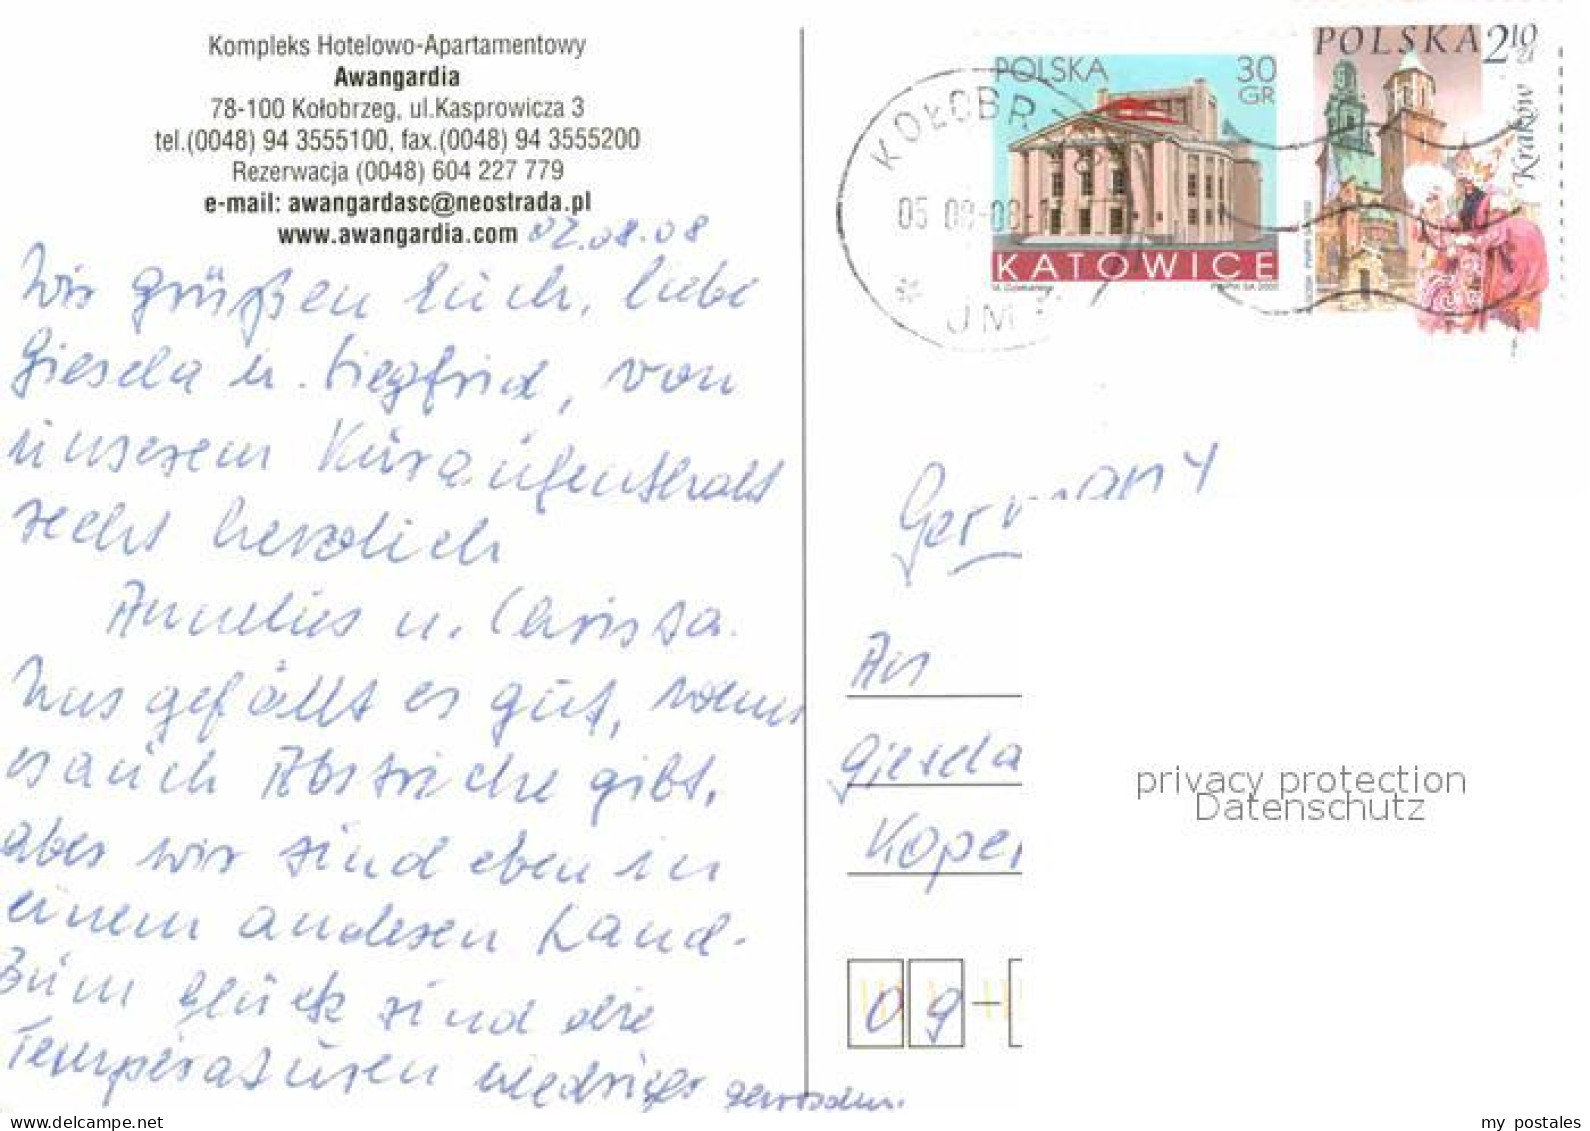 Kompleks Hotelowo-Apartamentowy
Awangardia
78-100 Kołobrzeg, ul.Kasprowicza 3
tel.(0048) 94 3555100, fax.(0048) 94 3555200
Rezerwacja (0048) 604 227 779
e-mail: awangardasc@neostrada.pl
www.awangardia.com 02.08.08
Wir grüßen Euch, liebe
Giesela u. Siegfried, von
unserem Kuraufenthalt
recht herzlich
Annelies u. Christa.
Uns gefällt es gut, wenns
es auch Abstriche gibt,
aber wir sind eben in
einem anderen Land.
Zum Glück sind die
Temperaturen niedriger geworden.
POLSKA 30
GR
KATOWICE
POLSKA 2 10 zł
Kraków
KOŁOBR
05 08-08
UM
Germany
An
Giesela
Koper
09-
privacy protection
Datenschutz
my postales